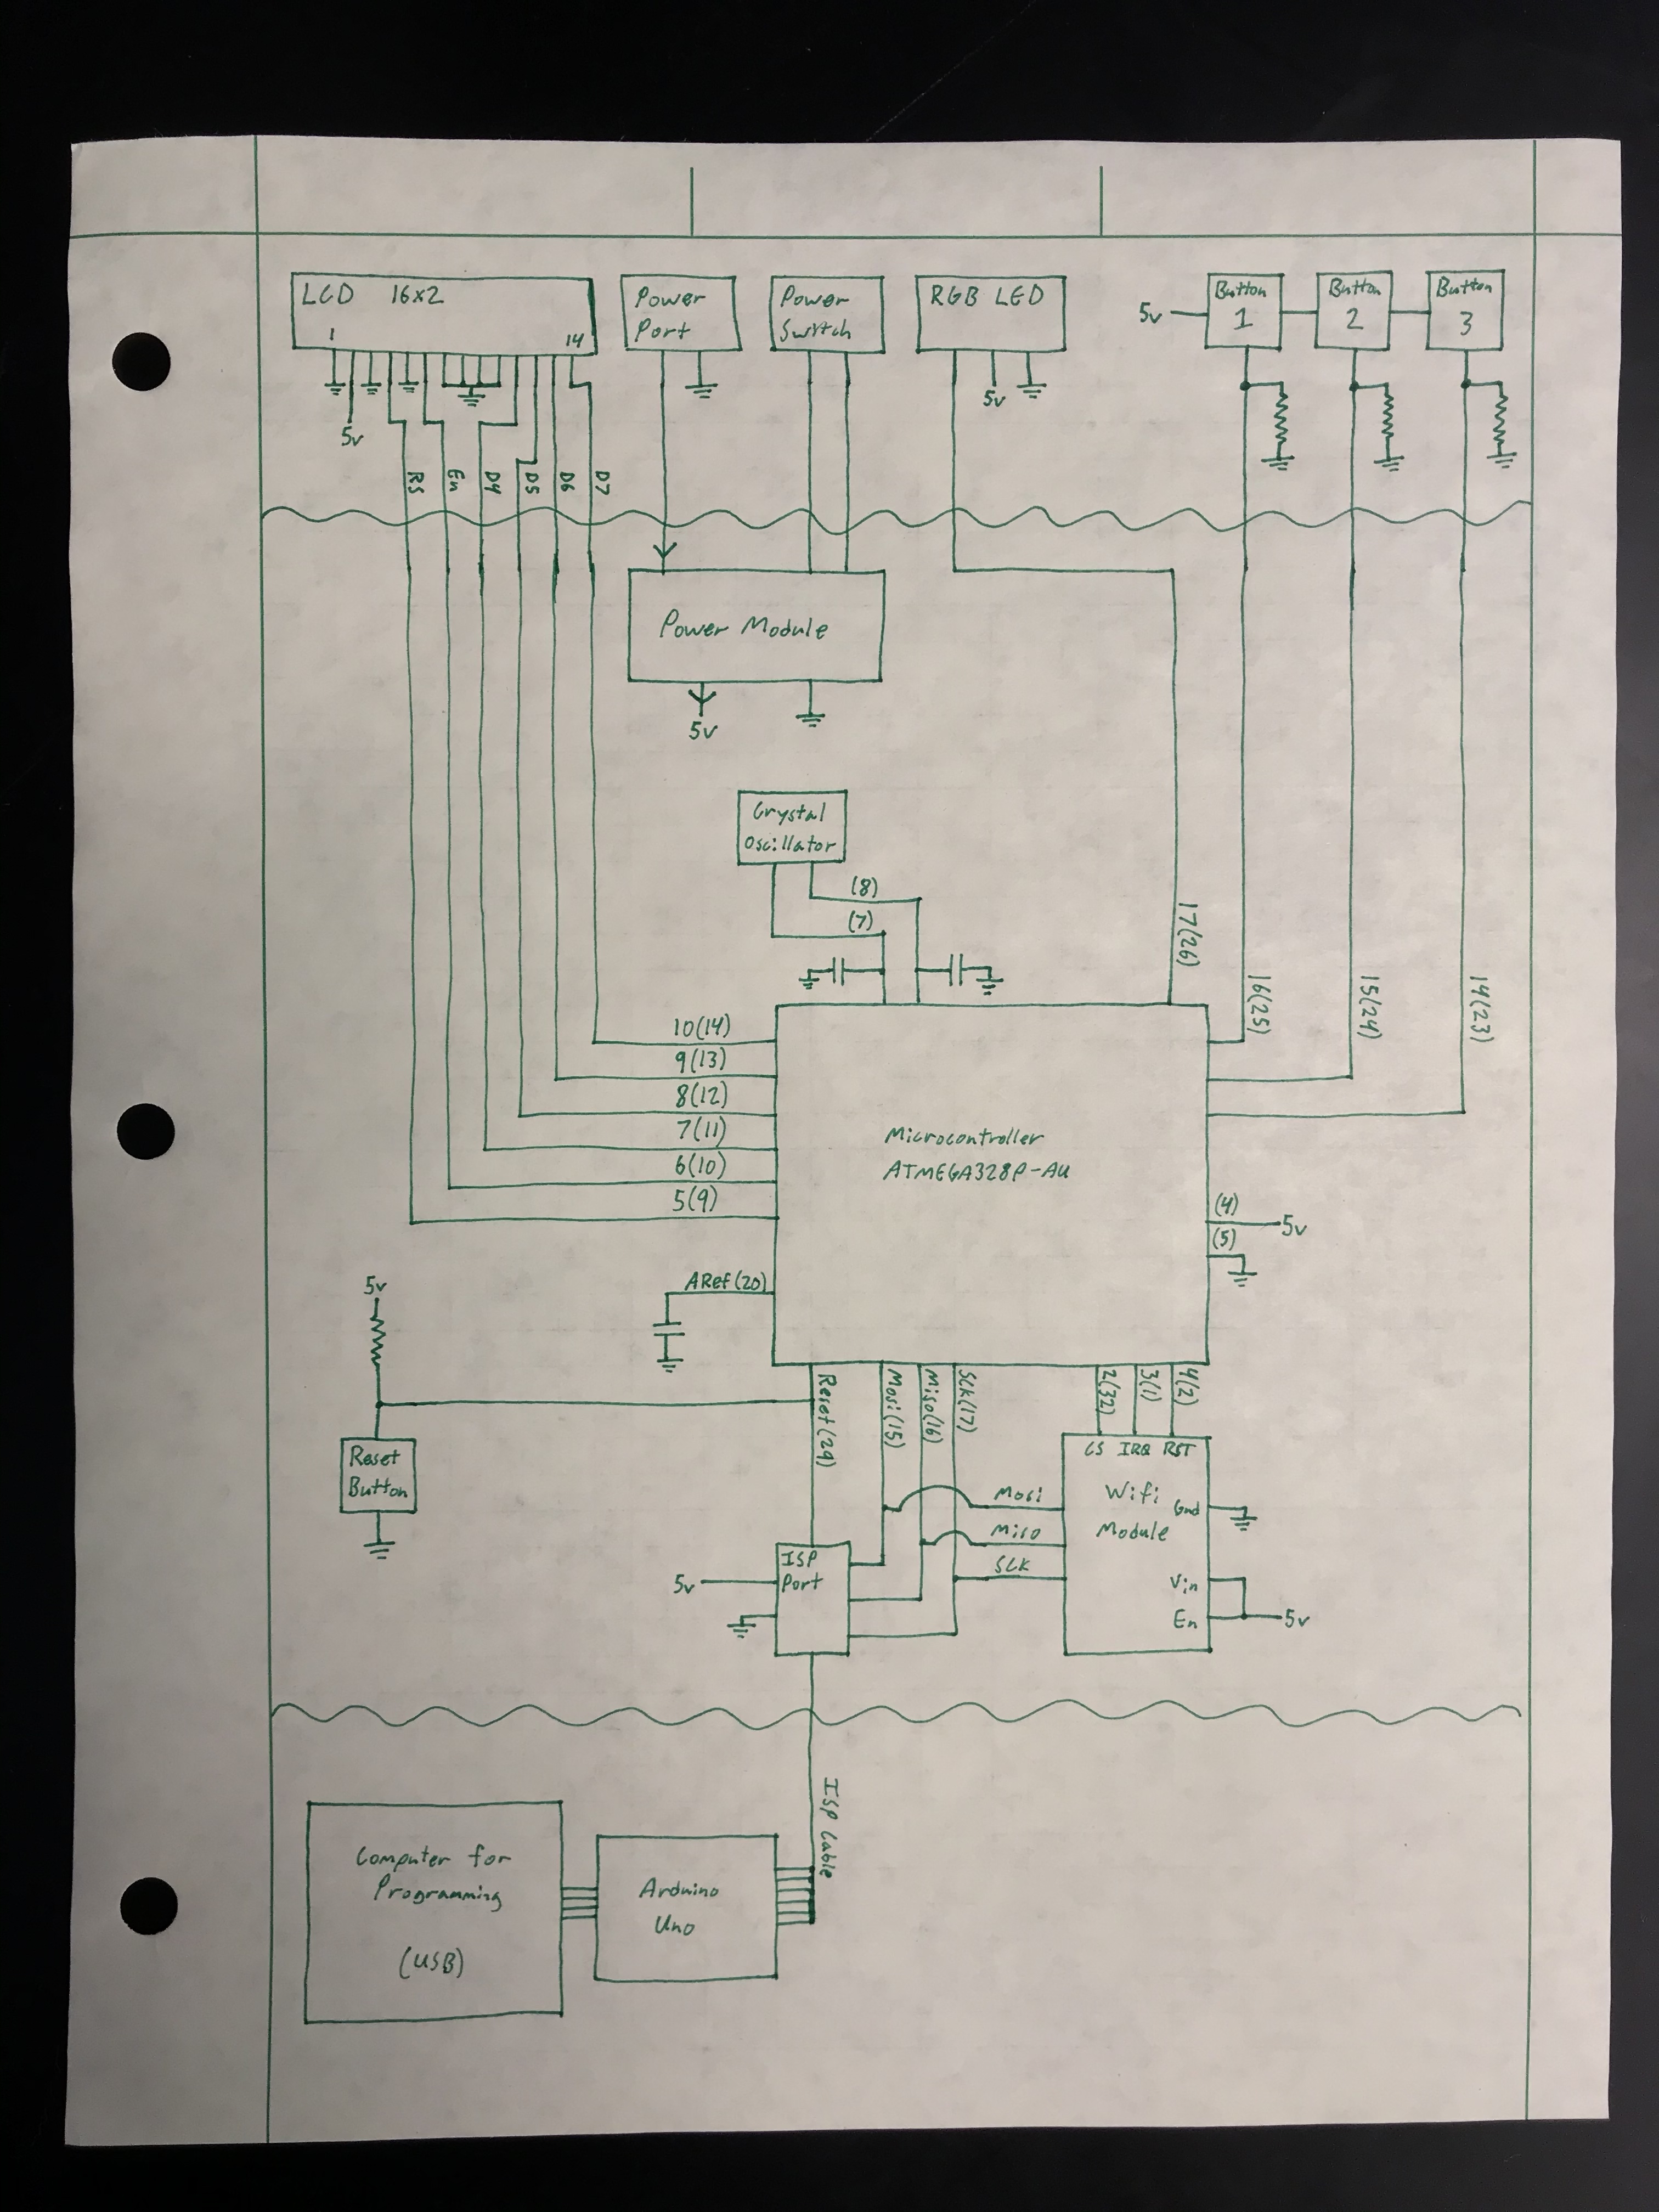 LCD 16x2
1
14
5v
RS
En
D4
D5
D6
D7
Power
Port
Power
Switch
RGB LED
5v
5v
Button
1
Button
2
Button
3
Power Module
5v
Crystal
Oscillator
(8)
(7)
17(26)
16(25)
15(24)
14(23)
10(14)
9(13)
8(12)
7(11)
6(10)
5(9)
Microcontroller
ATMEGA328P-AU
(4)
5v
(5)
ARef(20)
5v
Reset
Button
Reset(29)
Mosi(15)
Miso(16)
Sck(17)
2(32)
3(1)
4(2)
CS IRQ RST
Wifi
Module
Gnd
Vin
En
5v
Mosi
Miso
SCK
ISP
Port
5v
ISP Cable
Computer for
Programming
(USB)
Arduino
Uno